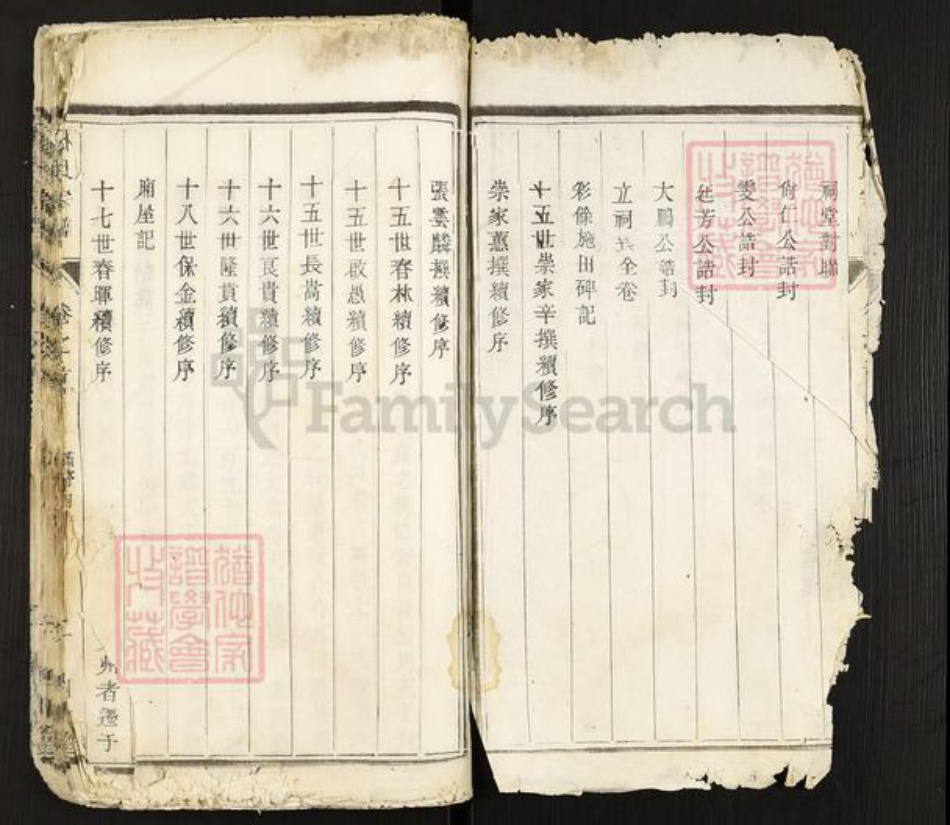 祠堂對聯
尙仁公誥封
雯公誥封
廷芳公誥封
大鵬公誥封
立祠 全卷
彩條施田碑記
十五世崇家辛撰續修序
崇家蕙撰續修序
張雲麟撰續修序
十五世春林續修序
十五世啟愚續修序
十五世長嵩續修序
十六世良貴續修序
十六世隆貴續修序
十八世保金續修序
廂屋記
十七世春暉續修序
州者遷于
猶他家
譜學會
收藏
猶他家
譜學會
收藏
FamilySearch